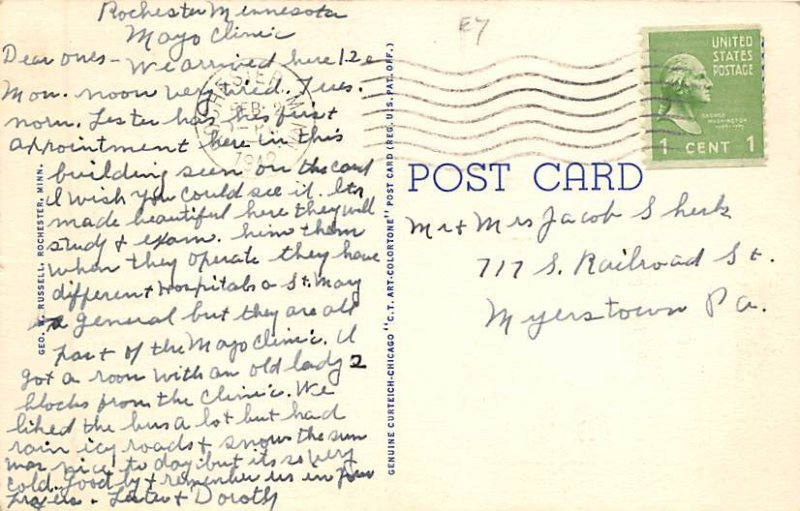 Rochester Minnesota
Mayo Clinic
Dear ones - We arrived here 12
Mon. noon very tired. Tues.
morn. Lester has his first
appointment here in this
building seen on the card
I wish you could see it. Its
made beautiful here they will
study & exam. him them
when they operate they have
different Hospitals a St. Mary
a general but they are all
part of the Mayo Clinic. I
got a room with an old lady 2
blocks from the Clinic. We
liked the bus a lot but had
rain icy roads & snow the sun
was nice to day but its so very
cold. Good by & remember us in your
prayers. Lester & Doroth
E7
ROCHESTER MINN.
FEB 2
1942
UNITED
STATES
POSTAGE
GEORGE
WASHINGTON
1 CENT 1
POST CARD
Mr & Mrs Jacob Sherk
717 S. Railroad St.
Myerstown Pa.
GEO. RUSSELL, ROCHESTER, MINN.
GENUINE CURTEICH-CHICAGO "C.T. ART-COLORTONE" POST CARD (REG. U.S. PAT. OFF.)